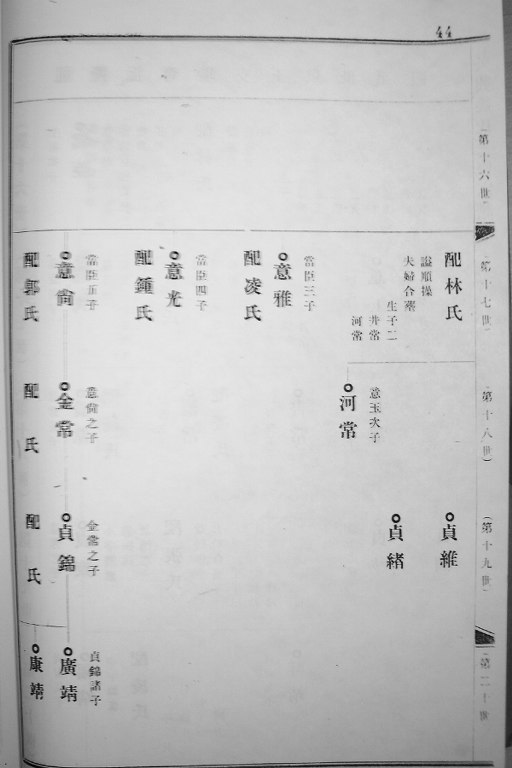 44
第十六世
第十七世
第十八世
第十九世
第二十世
配林氏
諡順操
夫婦合塟
生子二
井常
河常
當臣三子
意雅
配凌氏
當臣四子
意光
配鍾氏
當臣五子
意尙
配郭氏
意玉次子
河常
意尙之子
金常
配 氏
貞維
貞緒
金常之子
貞錦
配 氏
貞錦諸子
廣靖
康靖